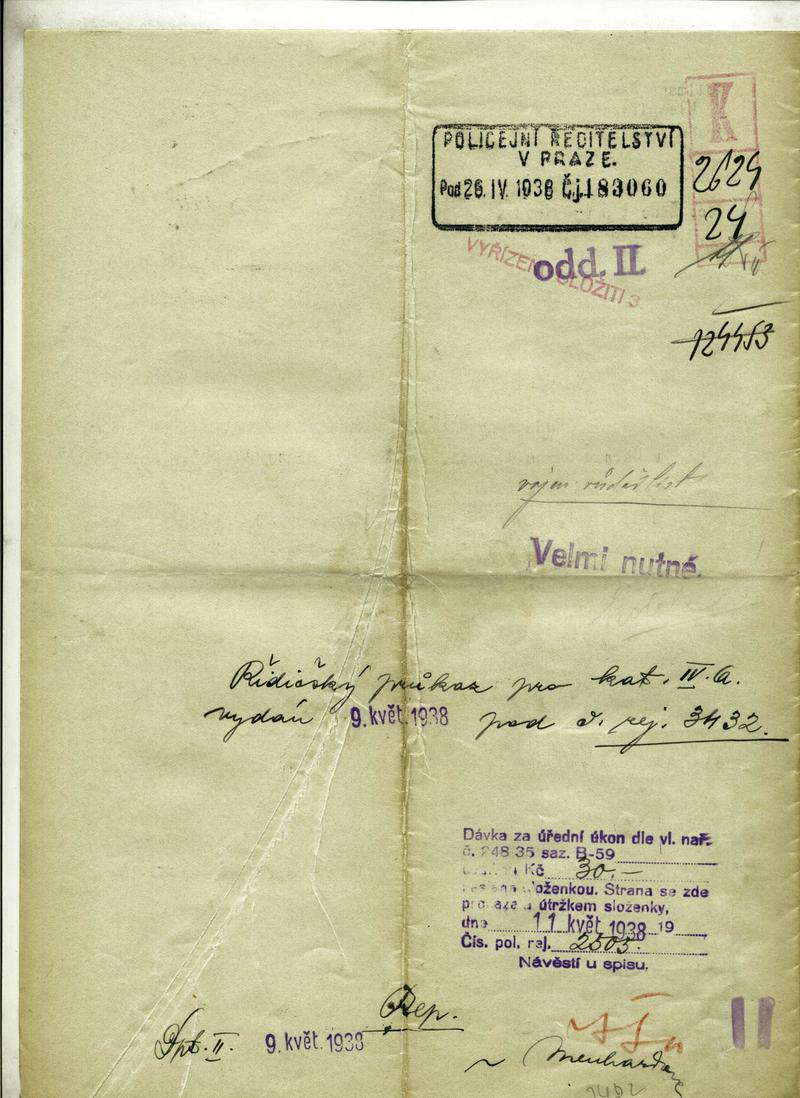 K
POLICEJNÍ ŘEDITELSTVÍ
V PRAZE.
Pod 26. IV. 1938 Čj. 183060
2624
24
VYŘÍZENO ULOŽITI 3
odd. II.
124453
vojen. vůdčí list
Velmi nutné.
Řidičský průkaz pro kat. IV. a.
vydán 9. květ. 1938 pod č. rej. 3432.
Dávka za úřední úkon dle vl. nař.
č. 248 35 saz. B-59
Kč 30.-
složenkou. Strana se zde
útržkem složenky,
dne 11 květ 1938 19
Čís. pol. rej. 2503.
Návěstí u spisu.
Rep.
II. 9. květ. 1938
II